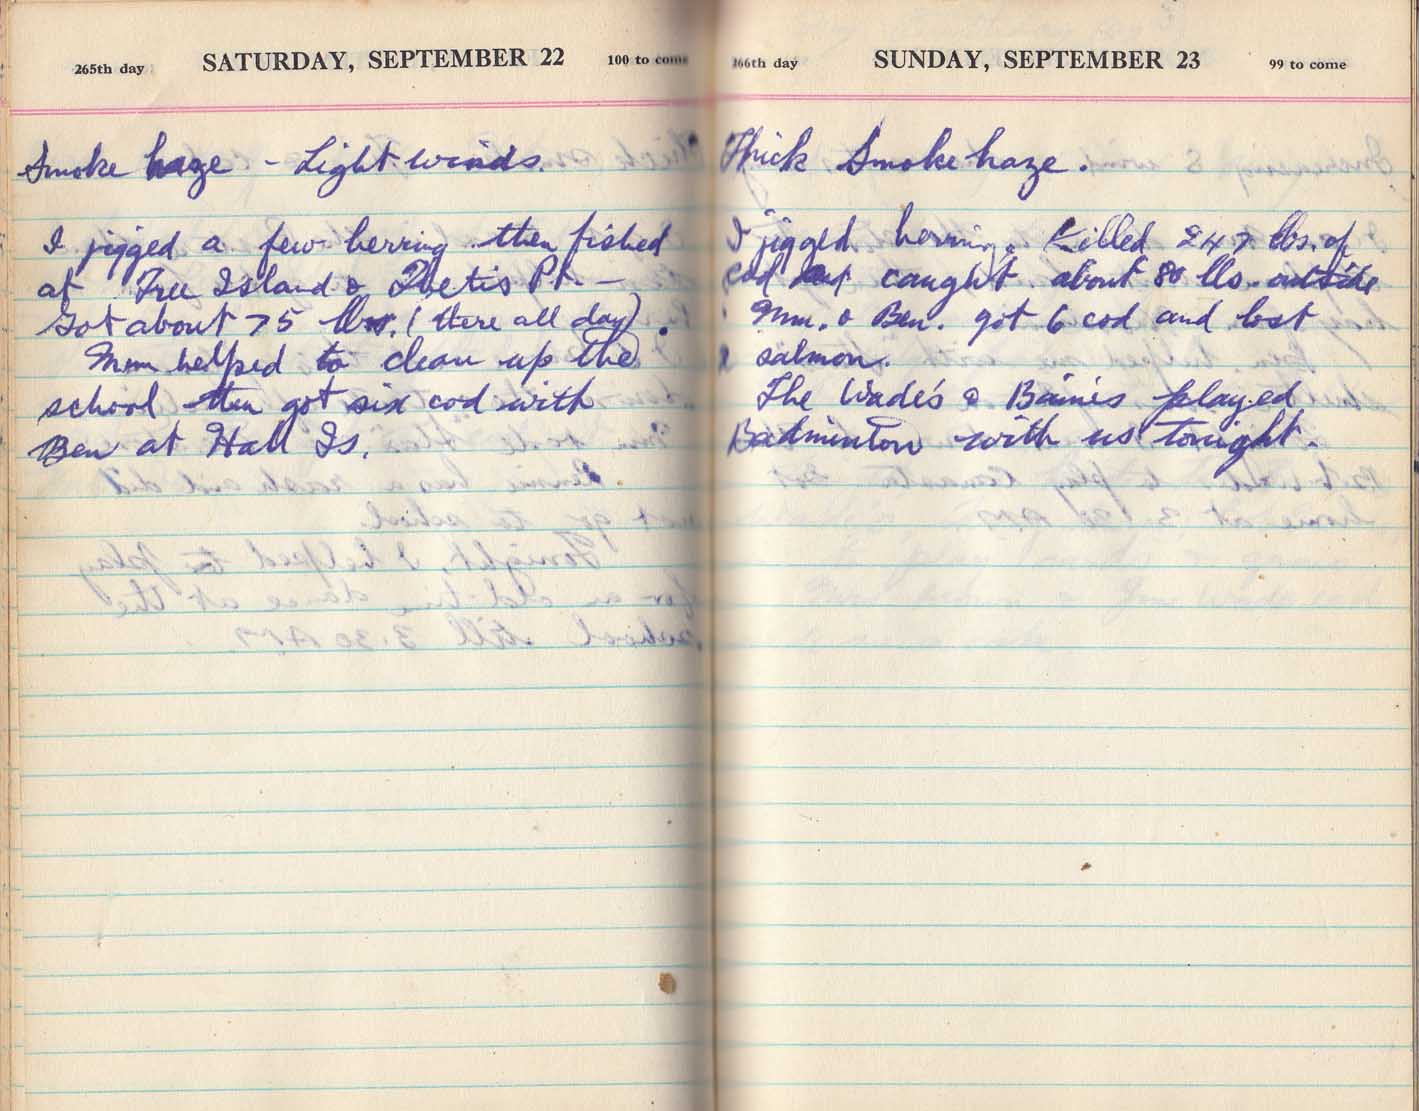 265th day SATURDAY, SEPTEMBER 22 100 to come
Smoke haze - Light winds.
I jigged a few herring then fished
at Tree Island & Thetis Pt. -
Got about 75 lbs. (there all day).
Mrm helped to clean up the
school then got six cod with
Ben at Hall Is.
266th day SUNDAY, SEPTEMBER 23 99 to come
Thick Smoke haze.
I jigged herring. Killed 247 lbs. of
cod and caught about 80 lbs. outside
Mrm. & Ben. got 6 cod and lost
salmon.
The Wade's & Bain's played
Badminton with us tonight.